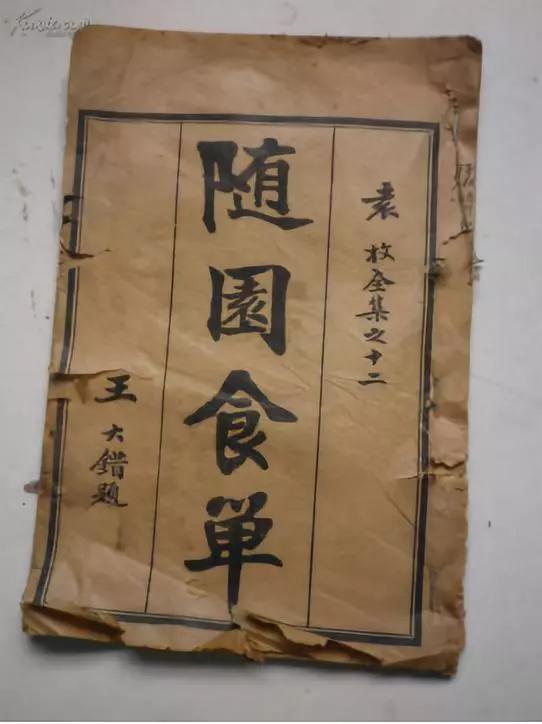 袁枚全集之十二
随園食单
王大錯題